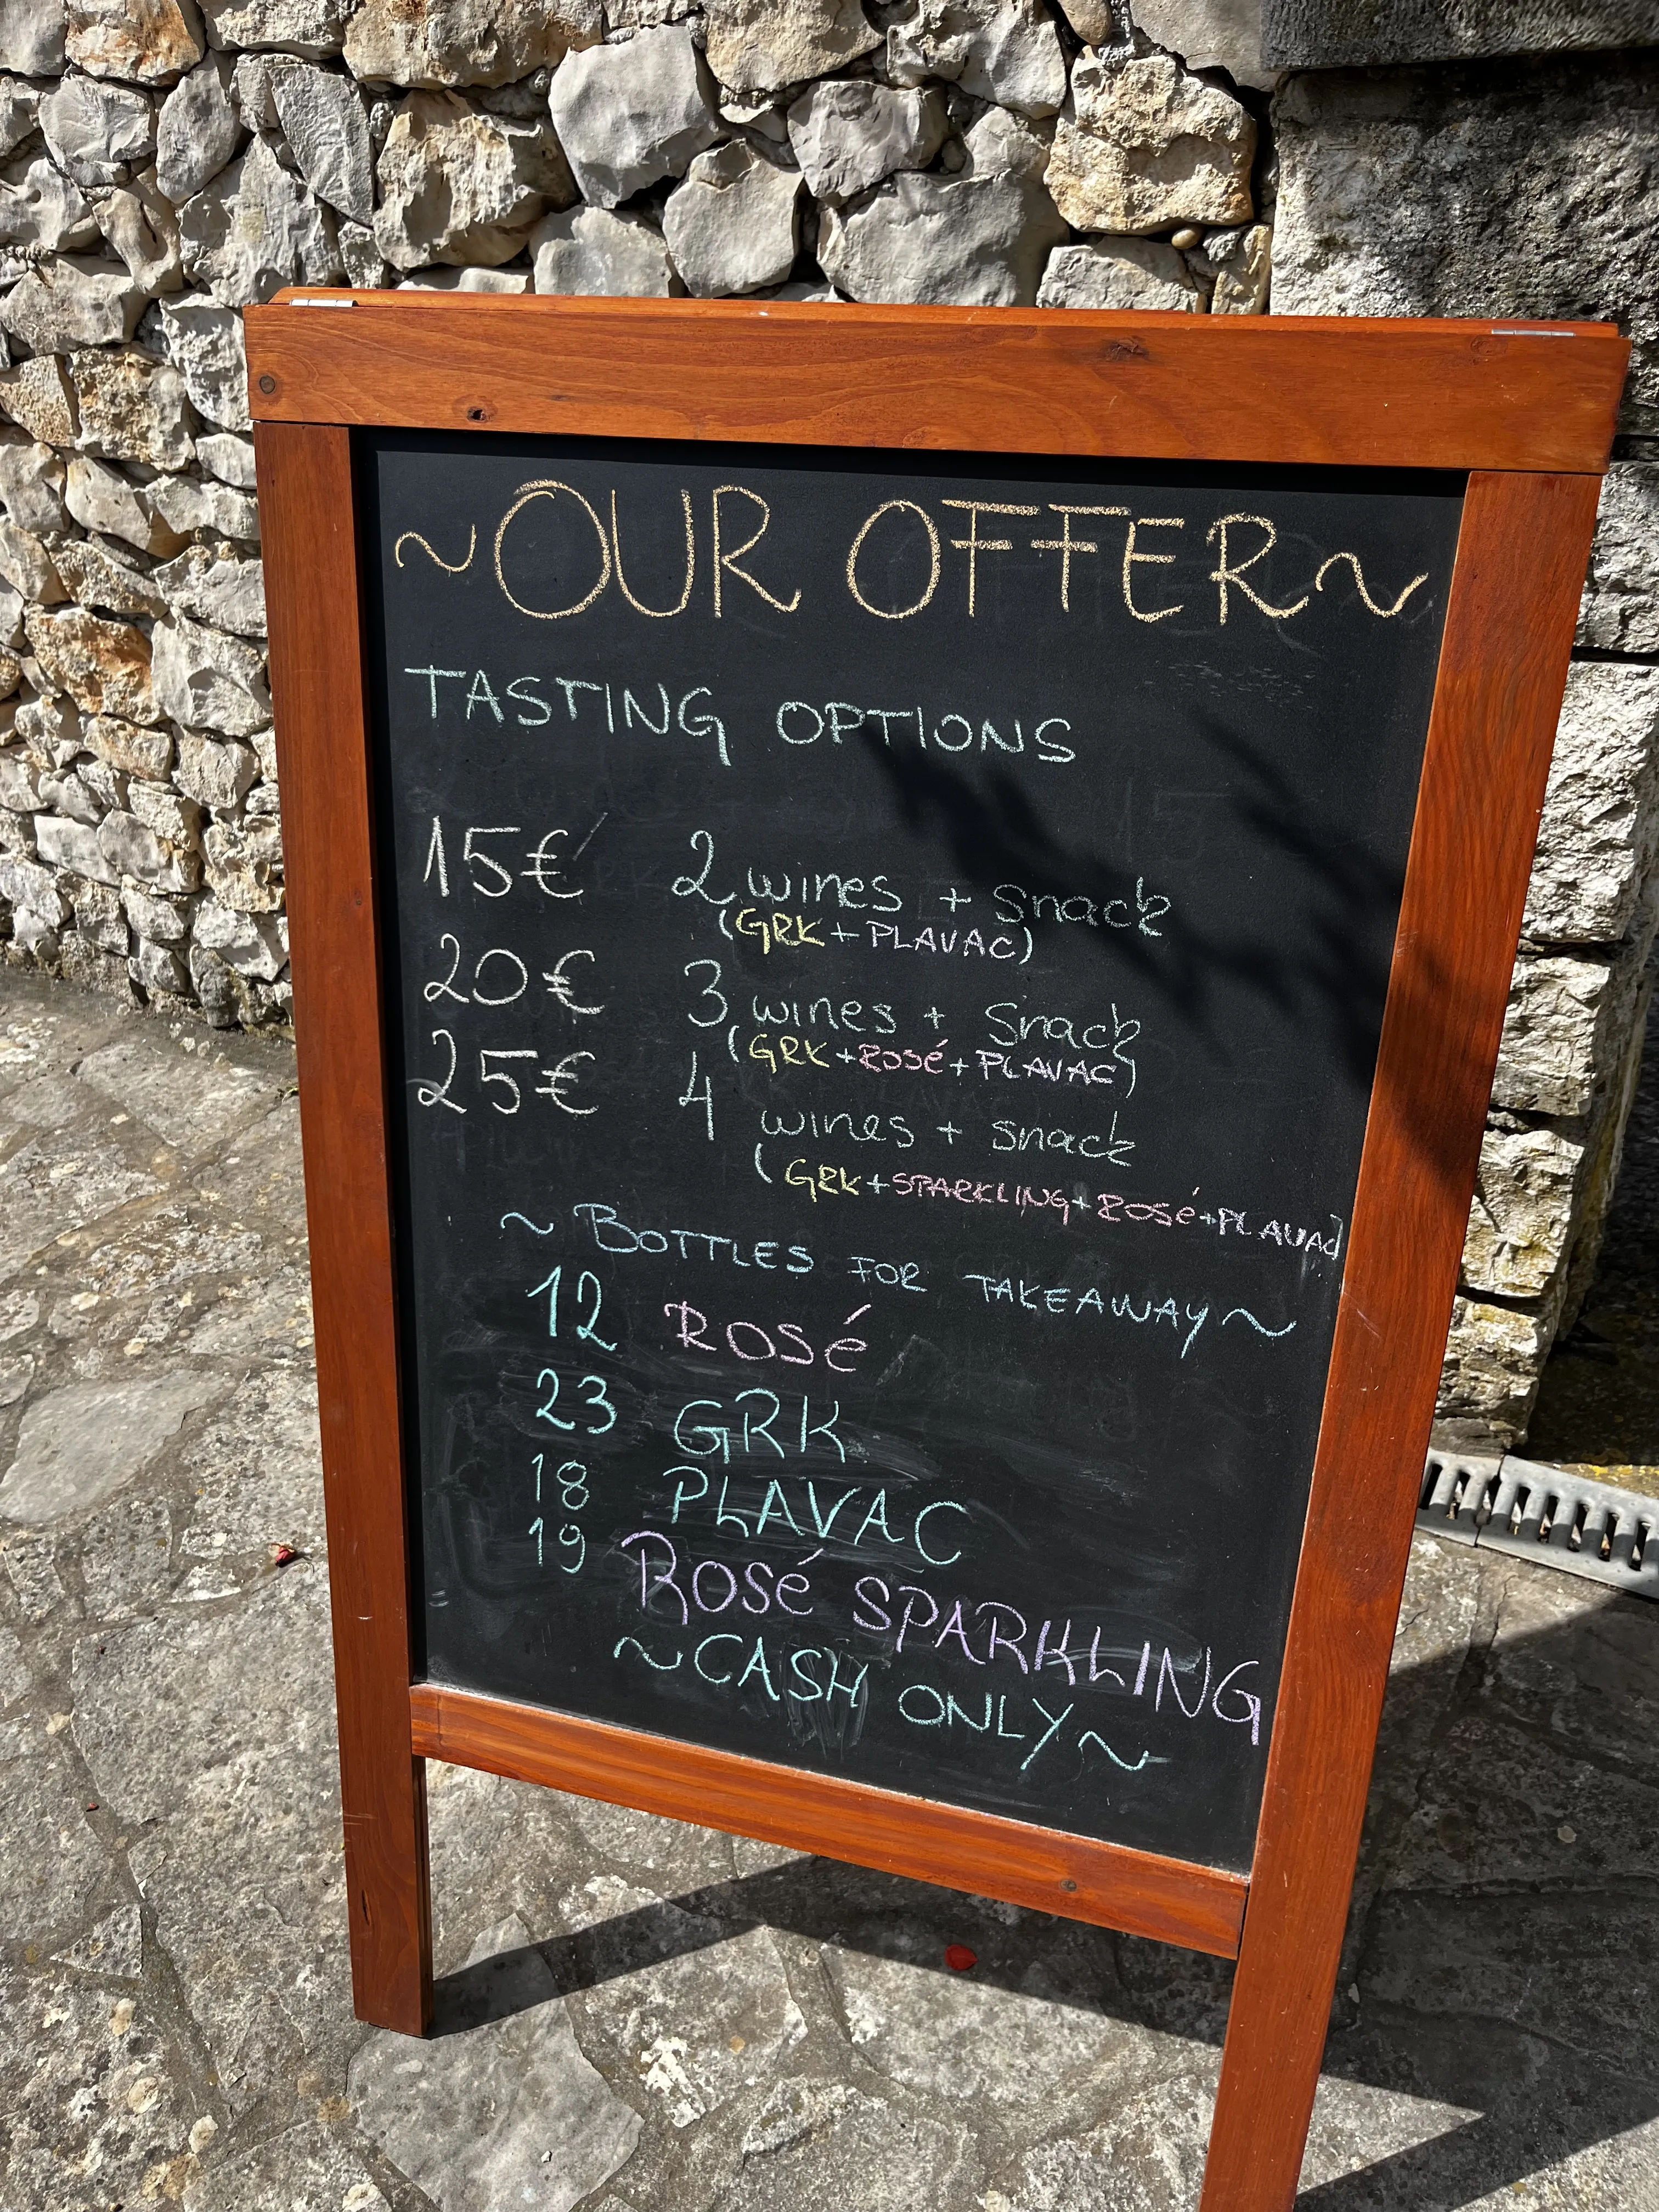 ~OUR OFFER~
TASTING OPTIONS
15€ 2 wines + snack
(GRK + PLAVAC)
20€ 3 wines + Snack
(GRK+ROSÉ+PLAVAC)
25€ 4 wines + snack
(GRK+SPARKLING+ROSÉ+PLAVAC)
~ BOTTLES FOR TAKEAWAY~
12 ROSÉ
23 GRK
18 PLAVAC
19 ROSÉ SPARKLING
~CASH ONLY~